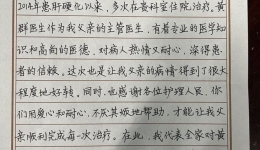 2014年患肝硬化以来，多次在贵科室住院，治疗，黄
群医生作为我父亲的主管医生，有着专业的医学知
识和高尚的医德，对病人热情又耐心，深得患
者的信赖，这次也是让我父亲的病情得到了很大
程度地好转。同时，也感谢各位护理人员，你
们用爱心和耐心，不厌其烦地帮助，才能让我父
亲顺利完成每一次治疗。在此，我代表全家对黄